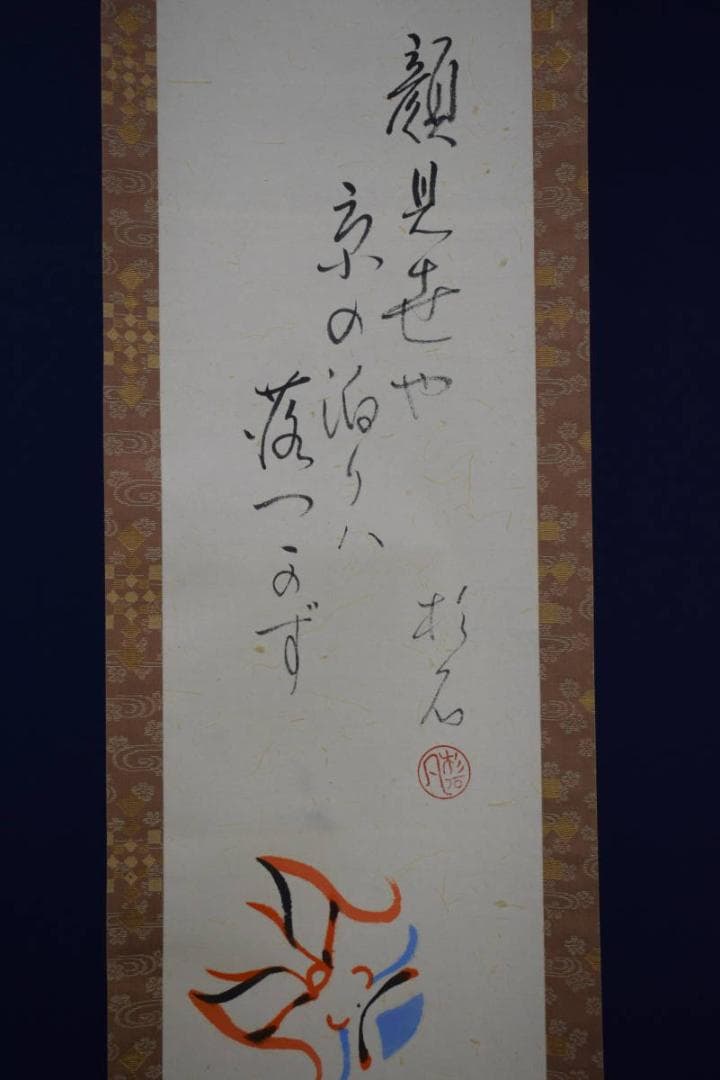 顔見せや
京の泊りハ
落つかず
杉石